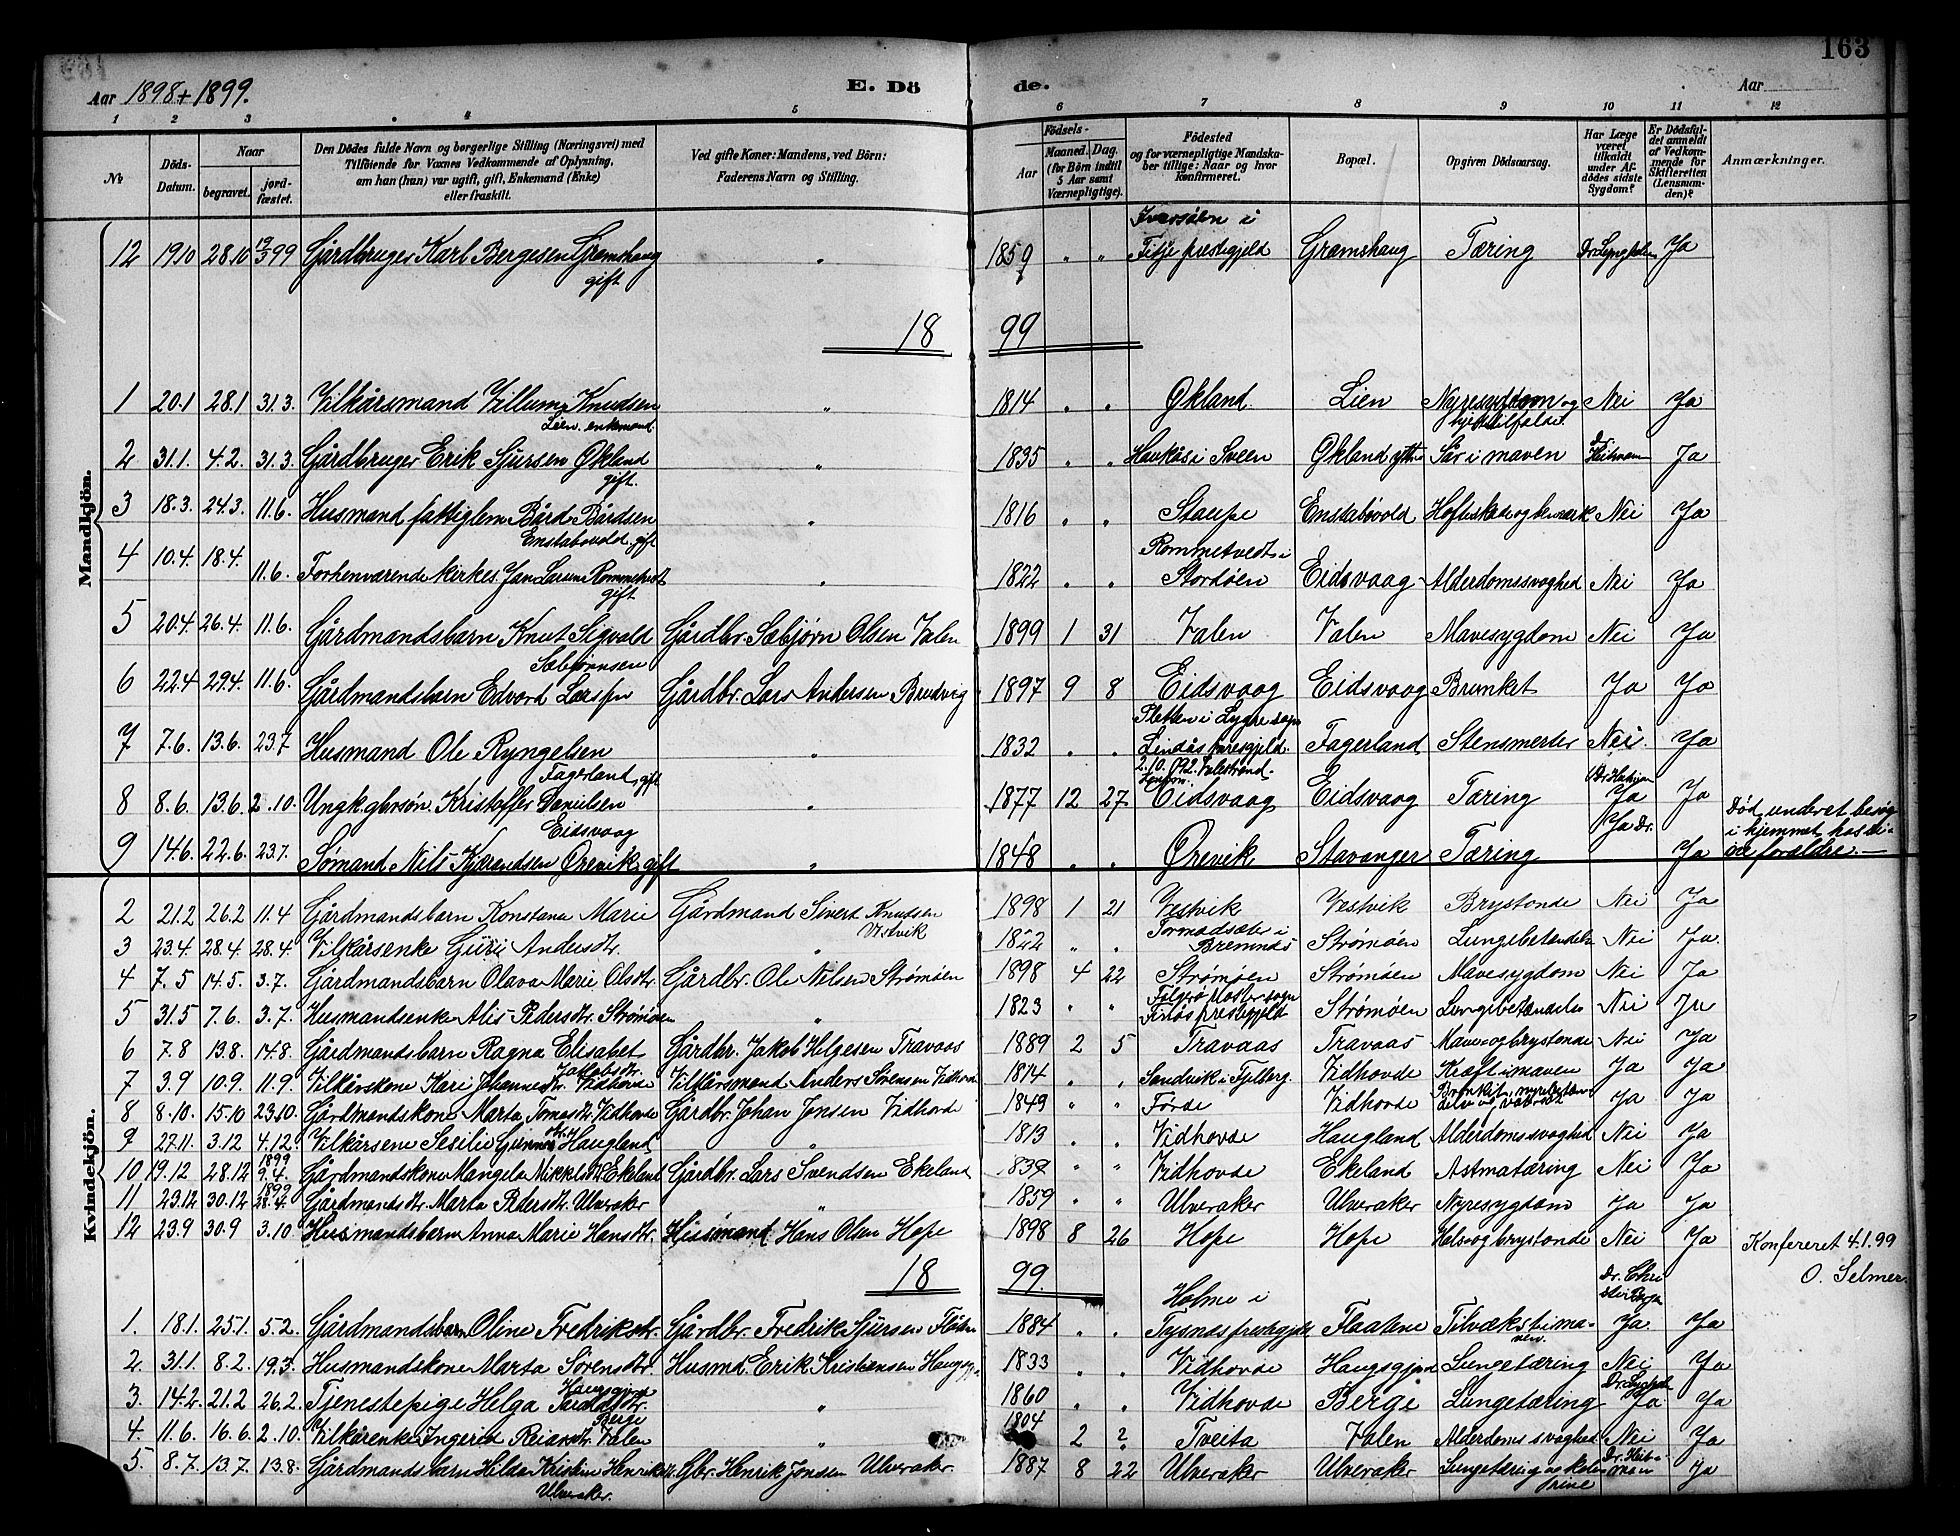 163
Aar 1898 + 1899. E. Dö de. Aar
1 2 3 4 5 6 7 8 9 10 11 12
№ Döds-Datum. Naar begravet. jord-fæstet. Den Dödes fulde Navn og borgerlige Stilling (Næringsvei) med Tilföiende for Voxnes Vedkommende af Oplysning, om han (hun) var ugift, gift, Enkemand (Enke) eller fraskilt. Ved gifte Koner: Mandens, ved Börn: Faderens Navn og Stilling. Födsels- Aar Maaned. Dag. (for Börn indtil 5 Aar samt Værnepligtige). Födested og for værnepligtige Mandskaber tillige: Naar og hvor konfirmeret. Bopæl. Opgiven Dödsaarsag. Har Læge været tilkaldt under Afdödes sidste Sygdom? Er Dödsfaldet anmeldt af Vedkommende for Skifteretten (Lensmanden)? Anmærkninger.
Mandkjön.
12 19.10 28.10 19/3 99 Gårdbruger Karl Bergesen Gramshaug gift " 1859 " " Iversøen i Fitje prestegjeld Gramshaug Tæring Dr. Ja
18 99
1 20.1 28.1 31.3. Vilkårsmand Villum Knudsen Lien. enkemand. " 1814 " " Økland. Lien Nyresygdom og Nei Ja
2 31.1. 4.2. 31.3. Gårdbruger Erik Sjursen Økland gift. " 1835 " " Haukås i Sveen Økland ytre Sår i maven Dr. Ja
3 18.3. 24.3. 11.6. Husmand fattiglem Bård Bårdsen Enstabovold. gift " 1816 " " Staupe Enstabøvold Hofteskade og Nei Ja
4 10.4. 18.4. 11.6. Forhenværende kirkes. Jan Larsen Rommetvedt gift " 1822 " " Rommetvedt i Stordøen Eidsvaag Alderdomssvaghed Nei Ja
5 20.4. 26.4. 11.6. Gårdmandsbarn Knut Sigvald Sæbjørnsen Gårdbr. Sæbjørn Olsen Valen 1899 1 31 Valen Valen Mavesygdom Nei Ja
6 22.4 29.4. 11.6. Gårdmandsbarn Edvard Larssen Gårdbr. Lars Andersen Brudvig 1897 9 8 Eidsvaag Eidsvaag Brunket Ja Ja
7 7.6. 13.6. 23.7. Husmand Ole Ryngelsen Fagerland, gift " 1832 " " Pletten i Lygre sogn Lindås Fagerland Stensmerter Nei. Ja
8 8.6. 13.6. 2.10. Ungk. gbrsøn. Kristoffer Danielsen Eidsvaag " 1877 12 27 2.10. 92. Valestrand. Eidsvaag Eidsvaag Tæring Ja Ja
9 14.6. 22.6. 23.7. Sømand Nils Ørevik, gift " 1848 " " Ørevik Stavanger Tæring Ja Dr. Ja Død under et besøg i hjemmet hos sine foraldre.
Kvindekjön.
2 21.2 26.2 11.4 Gårdmandsbarn Konstanse Marie Gårdmand Sivert Knutsen Vestvik 1898 1 21 Vestvik Vestvik Brystonde Nei Ja
3 23.4. 28.4. 28.4. Vilkårsenke Guri Andersdtr. " 1822 " " i Bremnes Strømøen Lungebetændelse Nei Ja.
4 7.5 14.5. 3.7. Gårdmandsbarn Olava Marie Olsdtr. Gårdbr. Ole Nilsen Strømøen 1898 4 22 Strømøen Strømøen Mavesygdom Nei Ja
5 31.5 7.6. 3.7. Husmandsenke Alis Pedersdtr. Strømøen " 1823 " " Følgerø Moster sogn Finås prestegjeld Strømøen Lungebetændelse Nei Ja
6 7.8 13.8. 14.8. Gårdmandsbarn Ragna Elisabet Jakobsdtr. Gårdbr. Jakob Helgesen Travaas 1889 2 5 Travaas Travaas Mave og brystonde Nei Ja
7 3.9 10.9. 11.9. Vilkårskone Kari Johannesdtr. Vidhovde Vilkårsmand Anders Sørensen Vidhovde 1814 " " Sandvik i Fjelberg. Vidhovde Kræft i maven Ja Ja
8 8.10. 15.10 23.10. Gårdmandskone Marta Tomasdtr. Vidhovde Gårdbr. Johan Jonsen Vidhovde 1849 " " Førde Vidhovde Ja Ja
9 27.11. 3.12 4.12. Vilkårsene Seselie Gunnarsdtr. Haugland " 1813 " " Vidhovde Haugland Alderdomssvaghed Nei Ja
10 19.12 28.12 1899 9.4. Gårdmandskone Mangela Mikkelsdtr. Ekeland Gårdbr. Lars Svendsen Ekeland 1839 " " Vidhovde Ekeland Astmatæring Nei Ja
11 23.12 30.12 1899 28.4. Gårdmandsdtr. Marta Pedersdtr. Ulveraker " 1859 " " Ulveraker Ulveraker Nyresygdom Ja Ja
12 23.9 30.9 3.10 Husmandsbarn Anna Marie Hansdtr. Husmand Hans Olsen Hope 1898 8 26 Hope Hope Hals og brystonde Nei Ja Konfereret 4.1.99 O. Selmer.
18 99.
1. 18.1. 25.1. 5.2. Gårdmandsbarn Oline Fredriksdtr. Gårdbr. Fredrik Sjursen 1884 " " Holme i Tysnæs prestegjeld Flaatene Tilvækst i maven. Ja Ja
2. 31.1. 8.2. 19.3. Husmandskone Marta Sørensdtr. Haugsgjerd Husmd. Erik Kristensen 1833 " " Vidhovde Haugsgjerd Lungetæring Nei Ja
3. 14.2. 21.2 26.2. Tjenestepige Helga Berge " 1860 " " Vidhovde Berge Lungetæring Ja Ja
4. 11.6. 16.6. 2.10. Vilkårenke Ingerid Valen " 1804 2 2 Tveita Valen Alderdoms svaghed Nei Ja
5. 8.7. 13.7. 13.8. Gårdmands barn Hilda Kristine Henriksdtr. Ulveraker. Gbr. Henrik Jonsen Ulveraker. 1887 8 22 Ulveraker Ulveraker Lungetæring Dr. Ja